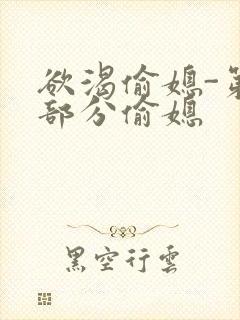 欲渴偷媳-第
部分偷媳
黑空行雲